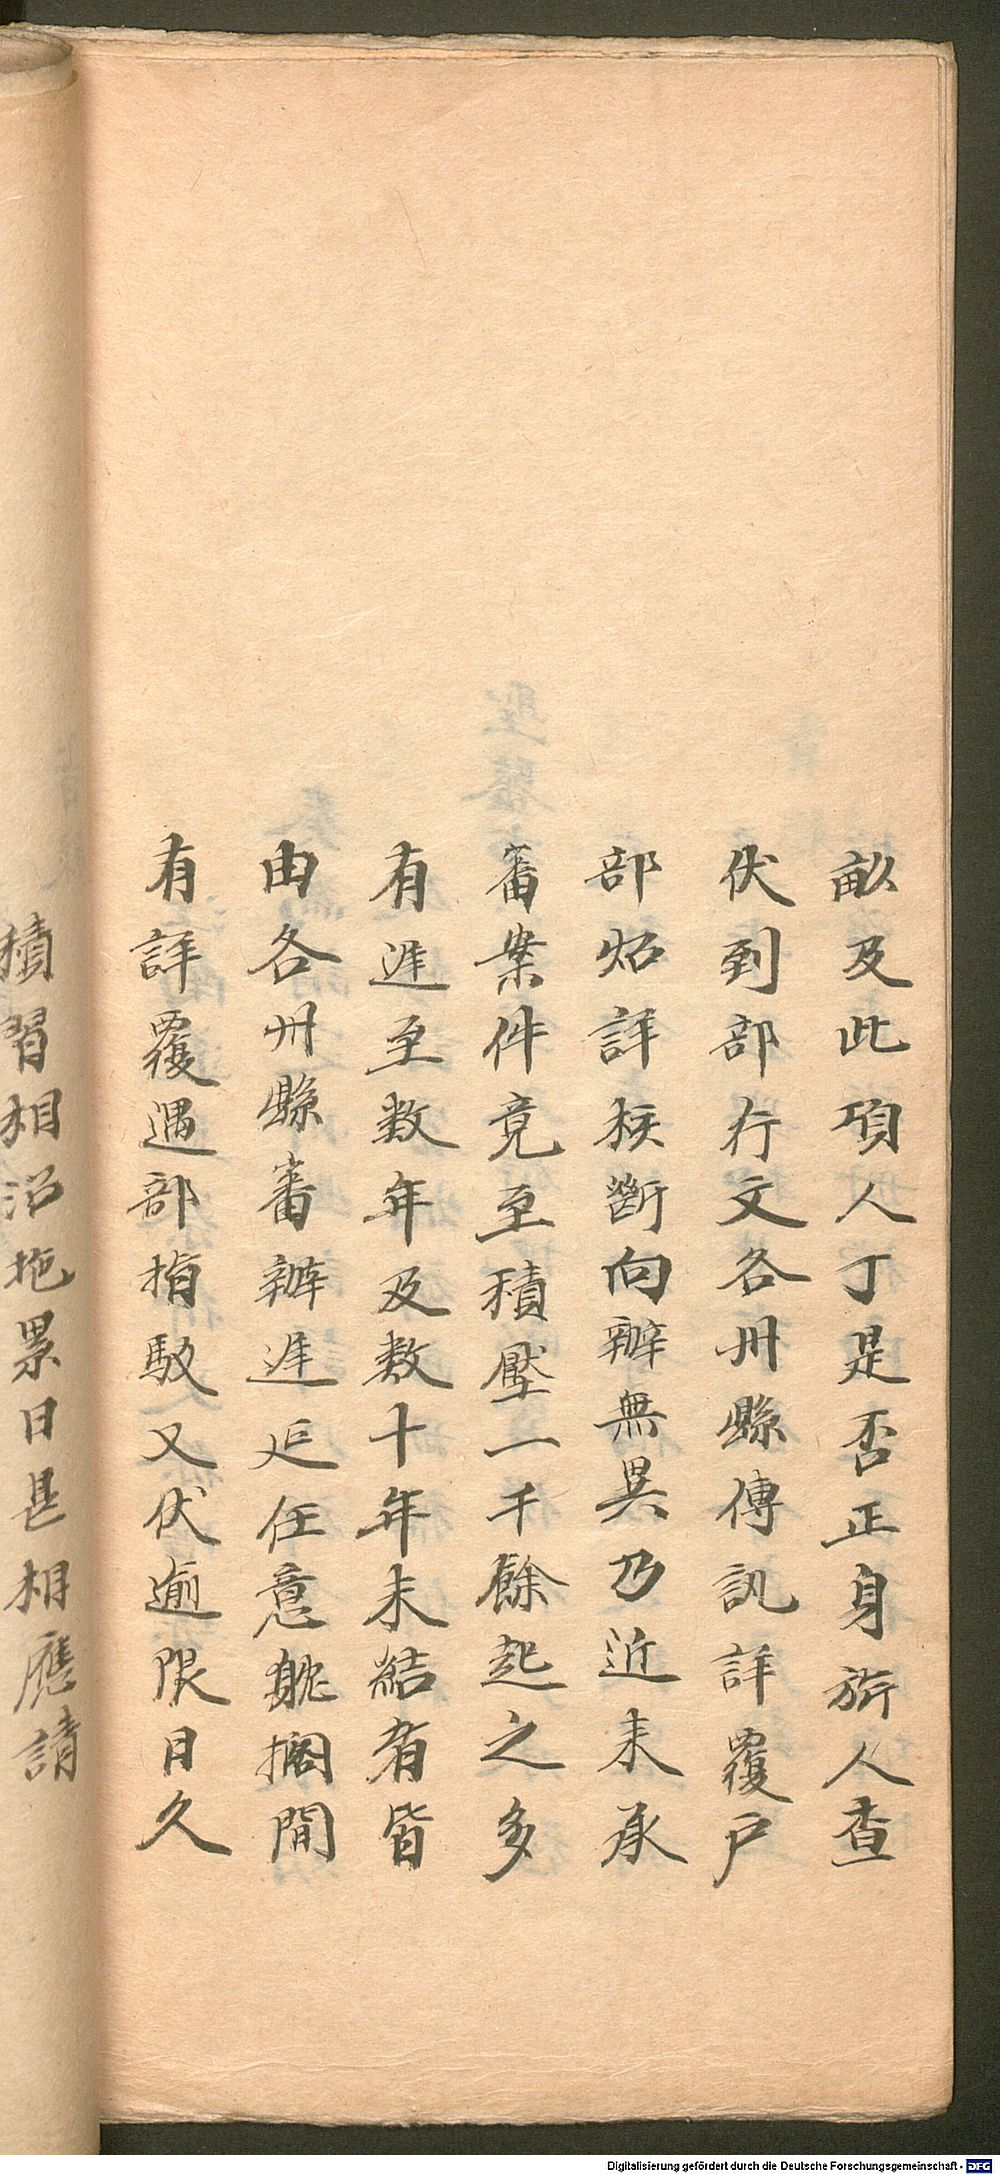 畝及此項人丁是否正身旂人查
伏到部行文各州縣傳訊詳覆户
部炤詳核斷向辦無異乃近来承
審案件竟至積壓一千餘起之多
有遲至数年及数十年未結者皆
由各州縣審辦遲延任意躭擱間
有詳覆遇部指駁又伏逾限日久
積習相沿拖累日甚相應請
Digitalisierung gefördert durch die Deutsche Forschungsgemeinschaft - DFG